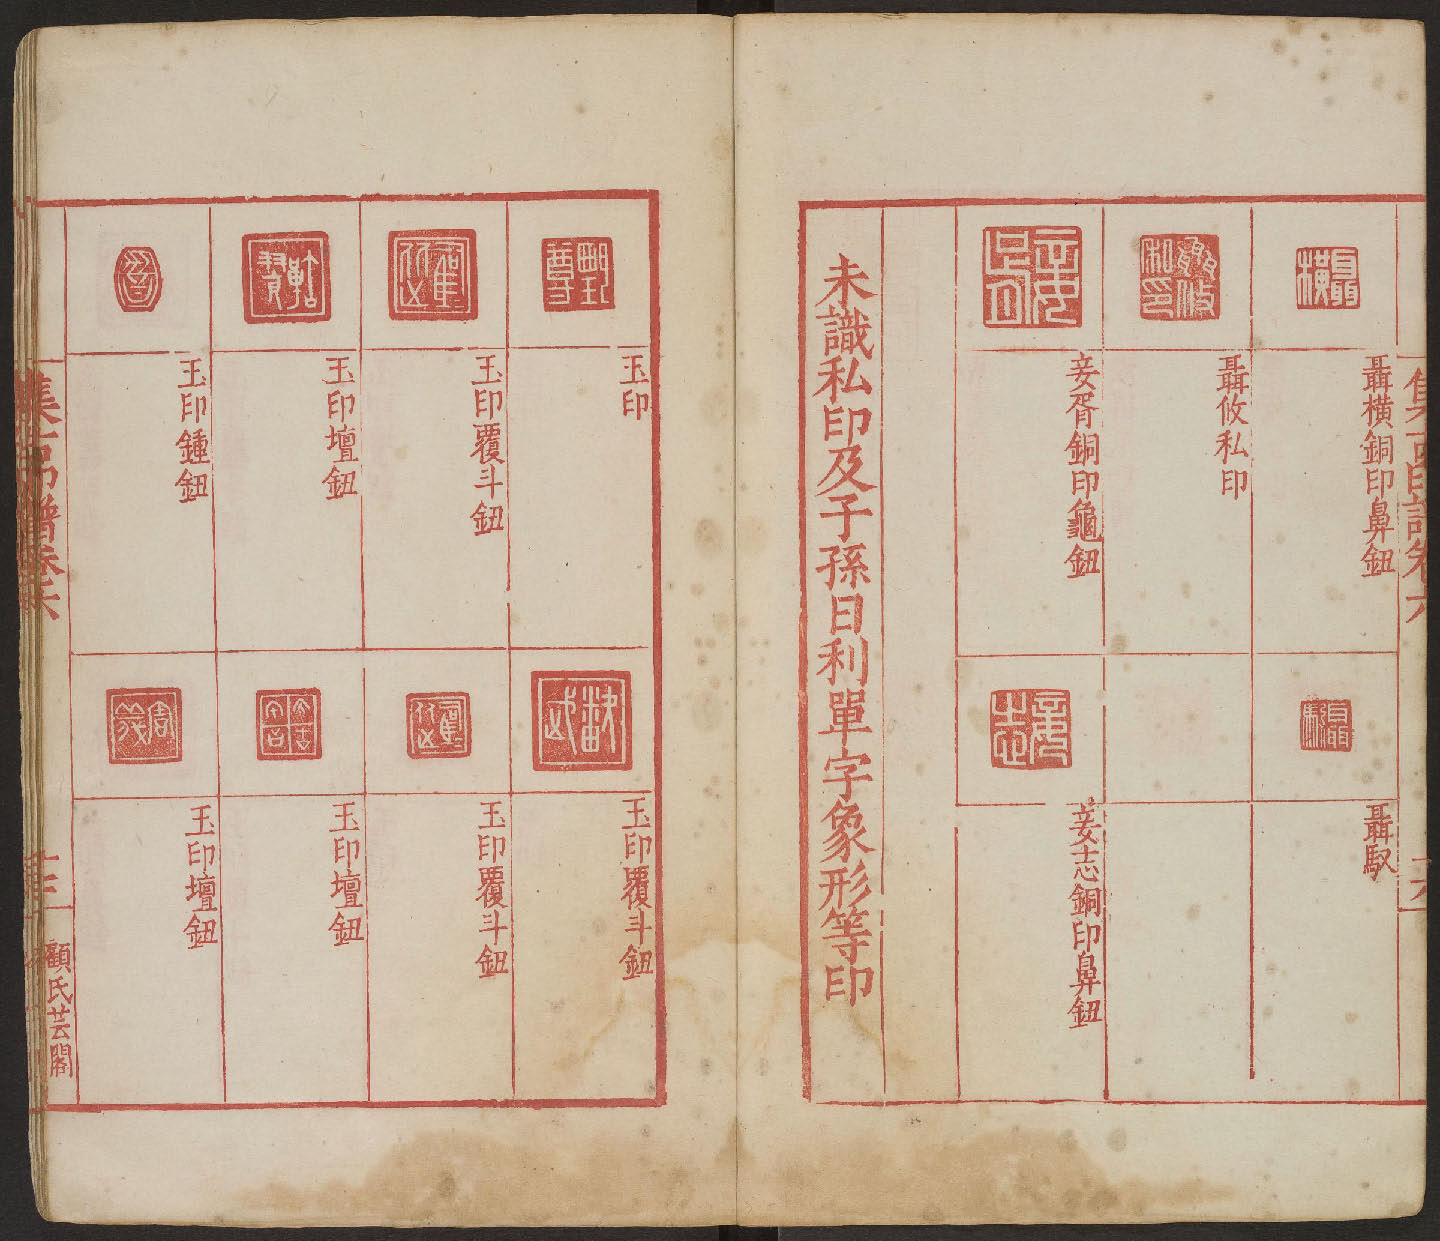 聶橫銅印鼻鈕
聶攸私印
妾胥銅印龜鈕
聶馭
妾志銅印鼻鈕
未識私印及子孫日利單字象形等印
玉印
玉印覆斗鈕
玉印壇鈕
玉印鍾鈕
玉印覆斗鈕
玉印覆斗鈕
玉印壇鈕
玉印壇鈕
集古印譜卷六
顧氏芸閣